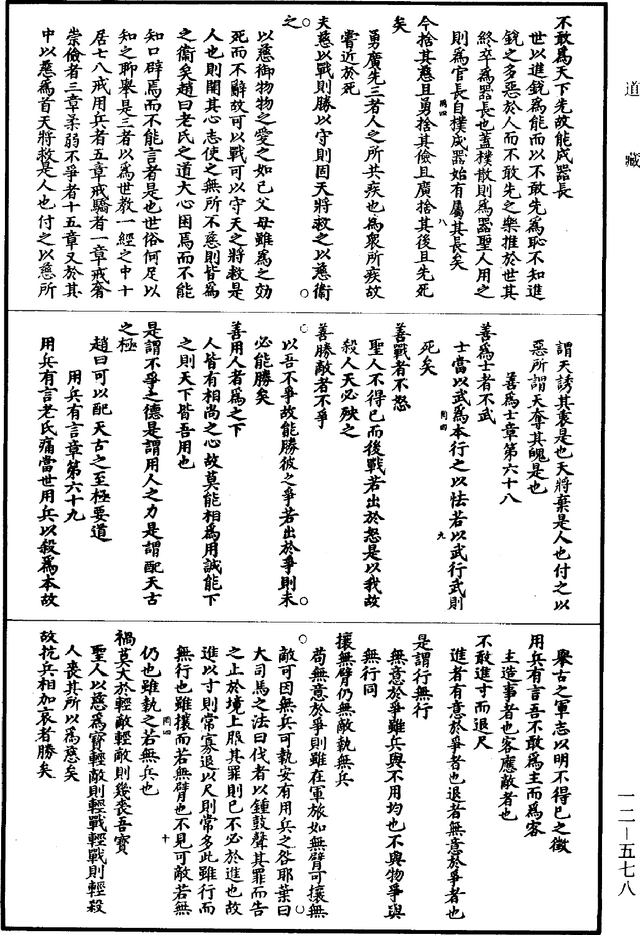 道藏
不敢為天下先故能成器長
世以進銳為能而以不敢先為恥不知進
銳之多惡於人而不敢先之樂推於世其
終卒為器長也蓋樸散則為器聖人用之
則為官長自樸成器始有屬其長矣
今捨其慈且勇捨其儉且廣捨其後且先死
矣
勇廣先三者人之所共疾也為眾所疾故
嘗近於死
夫慈以戰則勝以守則固天將救之以慈衛
之
以慈御物物之愛之如己父母雖為之効
死而不辭故可以戰可以守天之將救是
人也則開其心志使之無所不慈則皆為
之衛矣趙曰老氏之道大心困焉而不能
知口辟焉而不能言者是也世俗何足以
知之聊舉是三者以為世教一經之中十
居七八戒用兵者五章戒驕者一章戒奢
崇儉者三章柔弱不爭者十五章又於其
中以慈為首天將救是人也付之以慈所
謂天誘其衷是也天將棄是人也付之以
惡所謂天奪其魄是也
善為士章第六十八
善為士者不武
士當以武為本行之以怯若以武行武則
死矣
善戰者不怒
聖人不得已而後戰若出於怒是以我故
殺人天必殃之
善勝敵者不爭
以吾不爭故能勝彼之爭若出於爭則未
必能勝矣
善用人者為之下
人皆有相尚之心故莫能相為用誠能下
之則天下皆吾用也
是謂不爭之德是謂用人之力是謂配天古
之極
趙曰可以配天古之至極要道
用兵有言章第六十九
用兵有言老氏痛當世用兵以殺為本故
舉古之軍志以明不得已之微
用兵有言吾不敢為主而為客
主造事者也客應敵者也
不敢進寸而退尺
進者有意於爭者也退者無意於爭者也
是謂行無行
無意於爭雖兵與不用均也不與物爭與
無行同
攘無臂仍無敵執無兵
苟無意於爭則雖在軍旅如無臂可攘無
敵可因無兵可執安有用兵之咎耶葉曰
大司馬之法曰伐者以鍾鼓聲其罪而告
之止於境上服其罪則已不必於進也故
進以寸則常寡退以尺則常多此雖行而
無行也雖攘而若無臂也不見可敵若無
仍也雖執之若無兵也
禍莫大於輕敵輕敵則幾喪吾寶
聖人以慈為寶輕敵則輕戰輕戰則輕殺
人喪其所以為慈矣
故抗兵相加哀者勝矣
一二—五七八